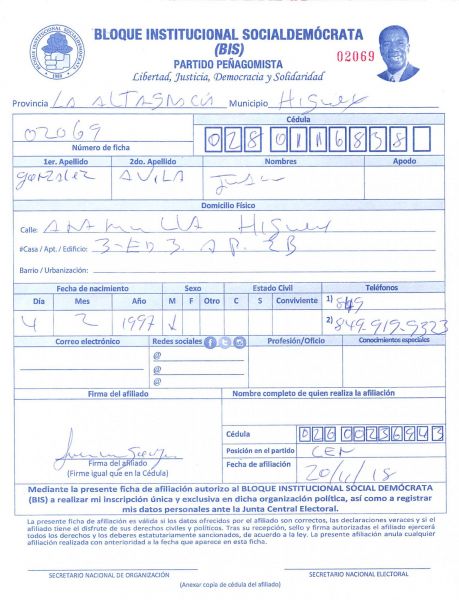 BLOQUE INSTITUCIONAL SOCIALDEMÓCRATA
(BIS)
PARTIDO PEÑAGOMISTA
Libertad, Justicia, Democracia y Solidaridad
02069
Provincia LA ALTAGRACIA Municipio Higuey
02069
Número de ficha
Cédula
028 0116838
1er. Apellido 2do. Apellido Nombres Apodo
gonzalez AVILA
Domicilio Físico
Calle: Higuey
#Casa / Apt. / Edificio: 3-ED 3. AP. 2B
Barrio / Urbanización:
Fecha de nacimiento Sexo Estado Civil Teléfonos
Día Mes Año M F Otro C S Conviviente 1) 849
4 2 1997 2) 849-919-9323
Correo electrónico Redes sociales Profesión/Oficio Conocimientos especiales
@
@
@
Firma del afiliado Nombre completo de quien realiza la afiliación
Cédula 026 00236443
Posición en el partido CEN
Fecha de afiliación 20/11/18
Firma del afiliado
(Firme igual que en la Cédula)
Mediante la presente ficha de afiliación autorizo al BLOQUE INSTITUCIONAL SOCIAL DEMÓCRATA
(BIS) a realizar mi inscripción única y exclusiva en dicha organización política, así como a registrar
mis datos personales ante la Junta Central Electoral.
La presente ficha de afiliación es válida si los datos ofrecidos por el afiliado son correctos, las declaraciones veraces y si el
afiliado tiene el disfrute de sus derechos civiles y políticos. Tras su recepción, sello y firma autorizada el afiliado ejercerá
todos los derechos y los deberes estatutariamente sancionados, de acuerdo a la ley. La presente afiliación anula cualquier
afiliación realizada con anterioridad a la fecha que aparece en esta ficha.
SECRETARIO NACIONAL DE ORGANIZACIÓN SECRETARIO NACIONAL ELECTORAL
(Anexar copia de cédula del afiliado)